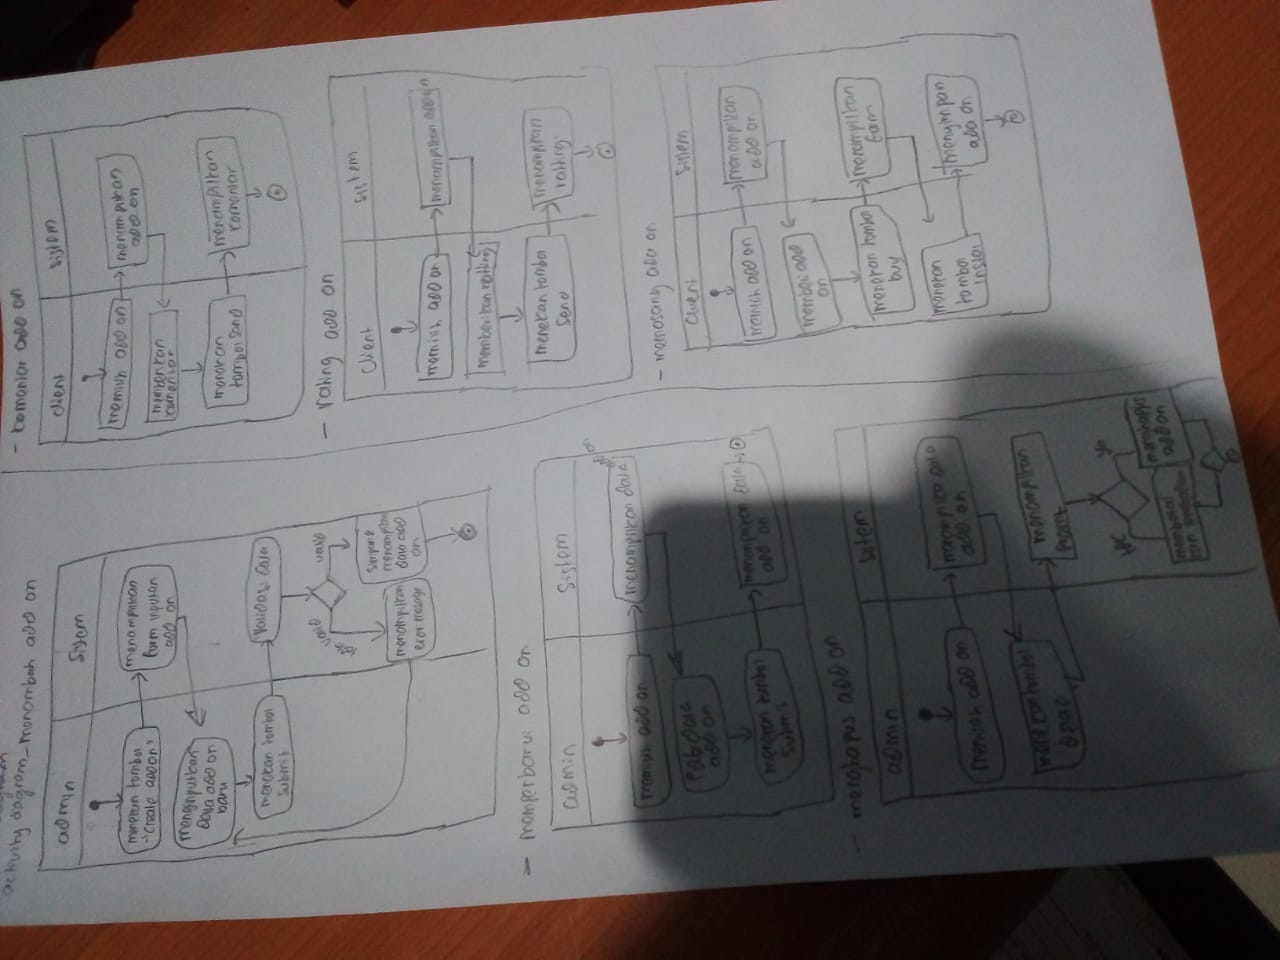 activity diagram_menambah add on
admin
Sistem
menekan tombol
"Create add on"
menampilkan
form inputan
add on
menginputkan
data add on
baru
menekan tombol
Submit
Validasi data
valid
menampilkan
eror mesage
data add
on
- memperbarui add on
admin
Sistem
memilih add on
menampilkan data
add on
edit data
add on
menekan tombol
Submit
menampilkan data
add on
- menghapus add on
admin
Sitem
memilih add on
data
add on
menekan tombol
menampilkan
ya
menghapus
add on
- komentar add on
client
sistem
memilih add on
menampilkan
add on
memberikan
komentar
menekan
tombol send
menampilkan
komentar
- rating add on
client
sistem
memilih add on
menampilkan add on
memberikan ratting
menekan tombol
Send
menampilkan
ratting
- memasang add on
client
sistem
memilih add on
menampilkan
add on
membeli add
on
menekan tombol
buy
menampilkan
form
menekan
tombol
instal
menyimpan
add on